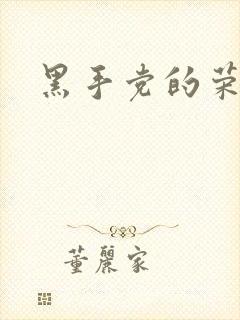 黑手党的荣
董丽家